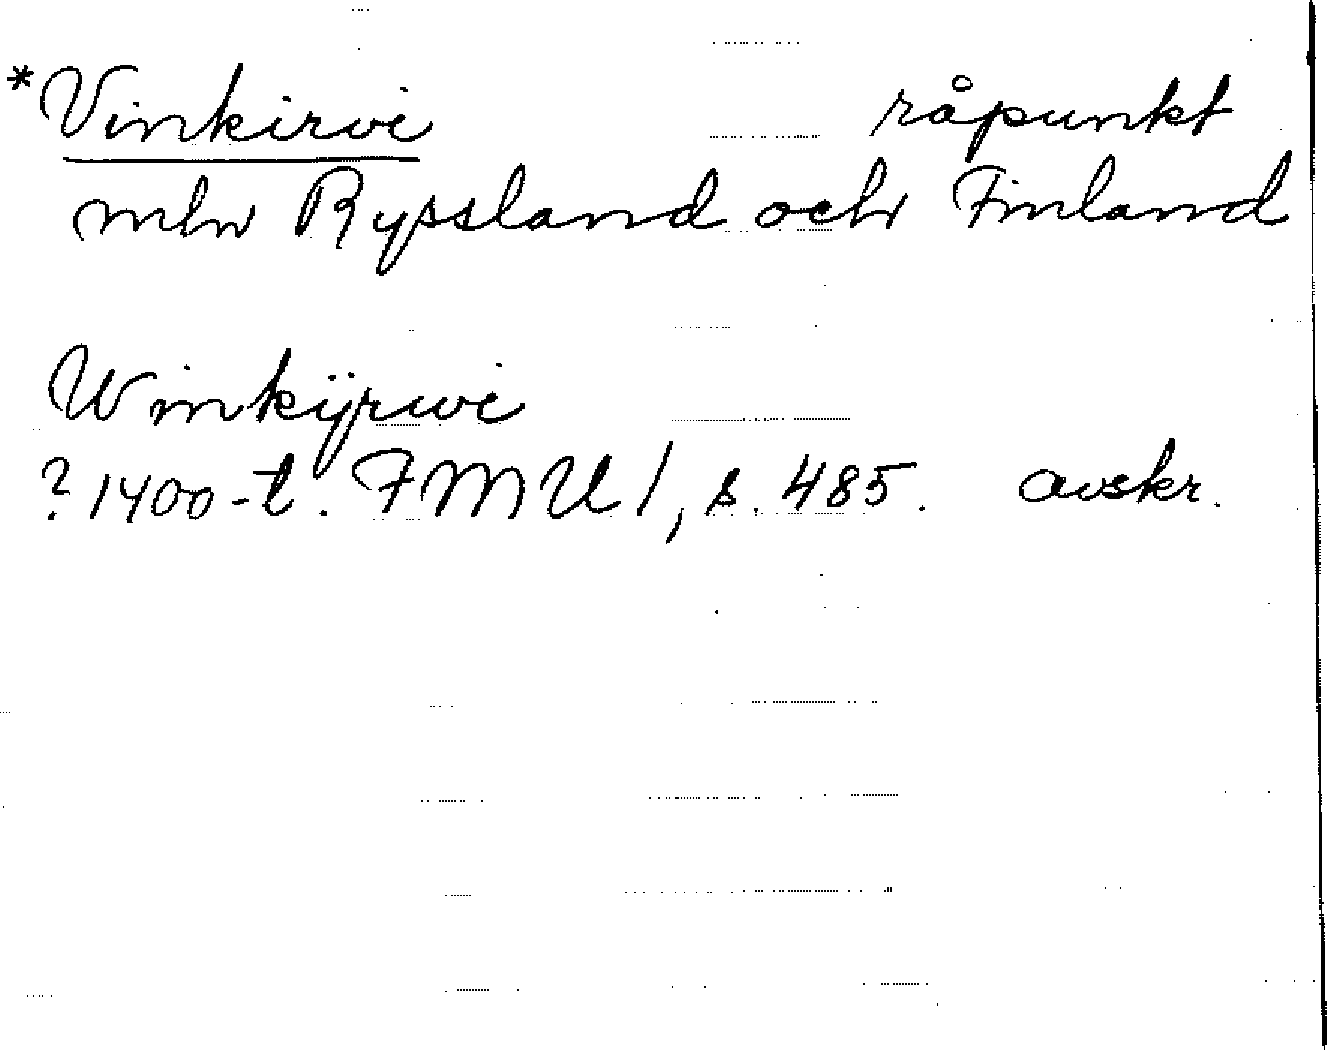 *Vinkirvi råpunkt
mln Ryssland och Finland
Winkÿrwi
? 1400-t. FMU 1, s. 485. avskr.